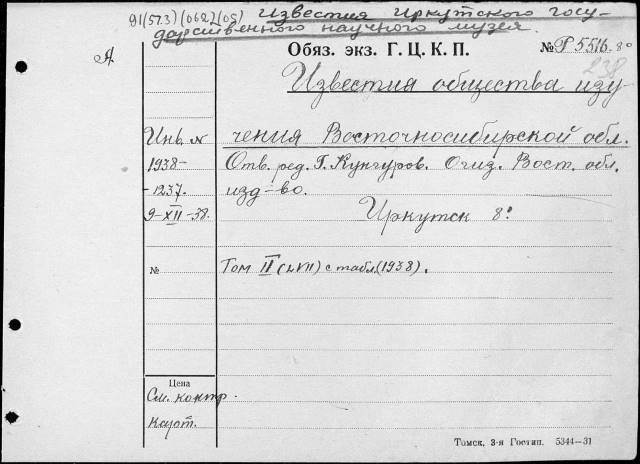 91(57.3)(062)(05) Известия Иркутского госу-
дарственного научного музея.
А
Обяз. экз. Г. Ц. К. П. № Р 5516. 8°
238
Известия общества изу
чения Восточносибирской обл.
Инв. №
1938-
-1237.
9-XII-38.
Отв. ред. Г. Кунгуров. Огиз. Вост. обл.
изд-во.
Иркутск 8°
№ Том II (LVII) с табл. (1938).
Цена
См. контр.
карт.
Томск, 3-я Гостип. 5344—31